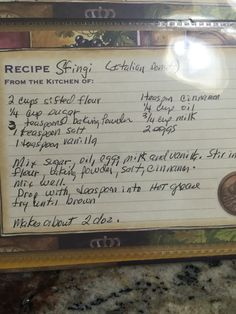 RECIPE Sfingi (Italian donut)
FROM THE KITCHEN OF:
2 cups sifted flour 1 teaspoon cinnamon
1/4 cup sugar 1/4 cup oil
3 teaspoons baking powder 3/4 cup milk
1 teaspoon salt 2 eggs
1 teaspoon vanilla
Mix sugar, oil, egg, milk and vanilla. Stir in
flour, baking powder, salt, cinnamon.
Mix well.
Drop with teaspoon into HOT grease
fry until brown
Makes about 2 doz.